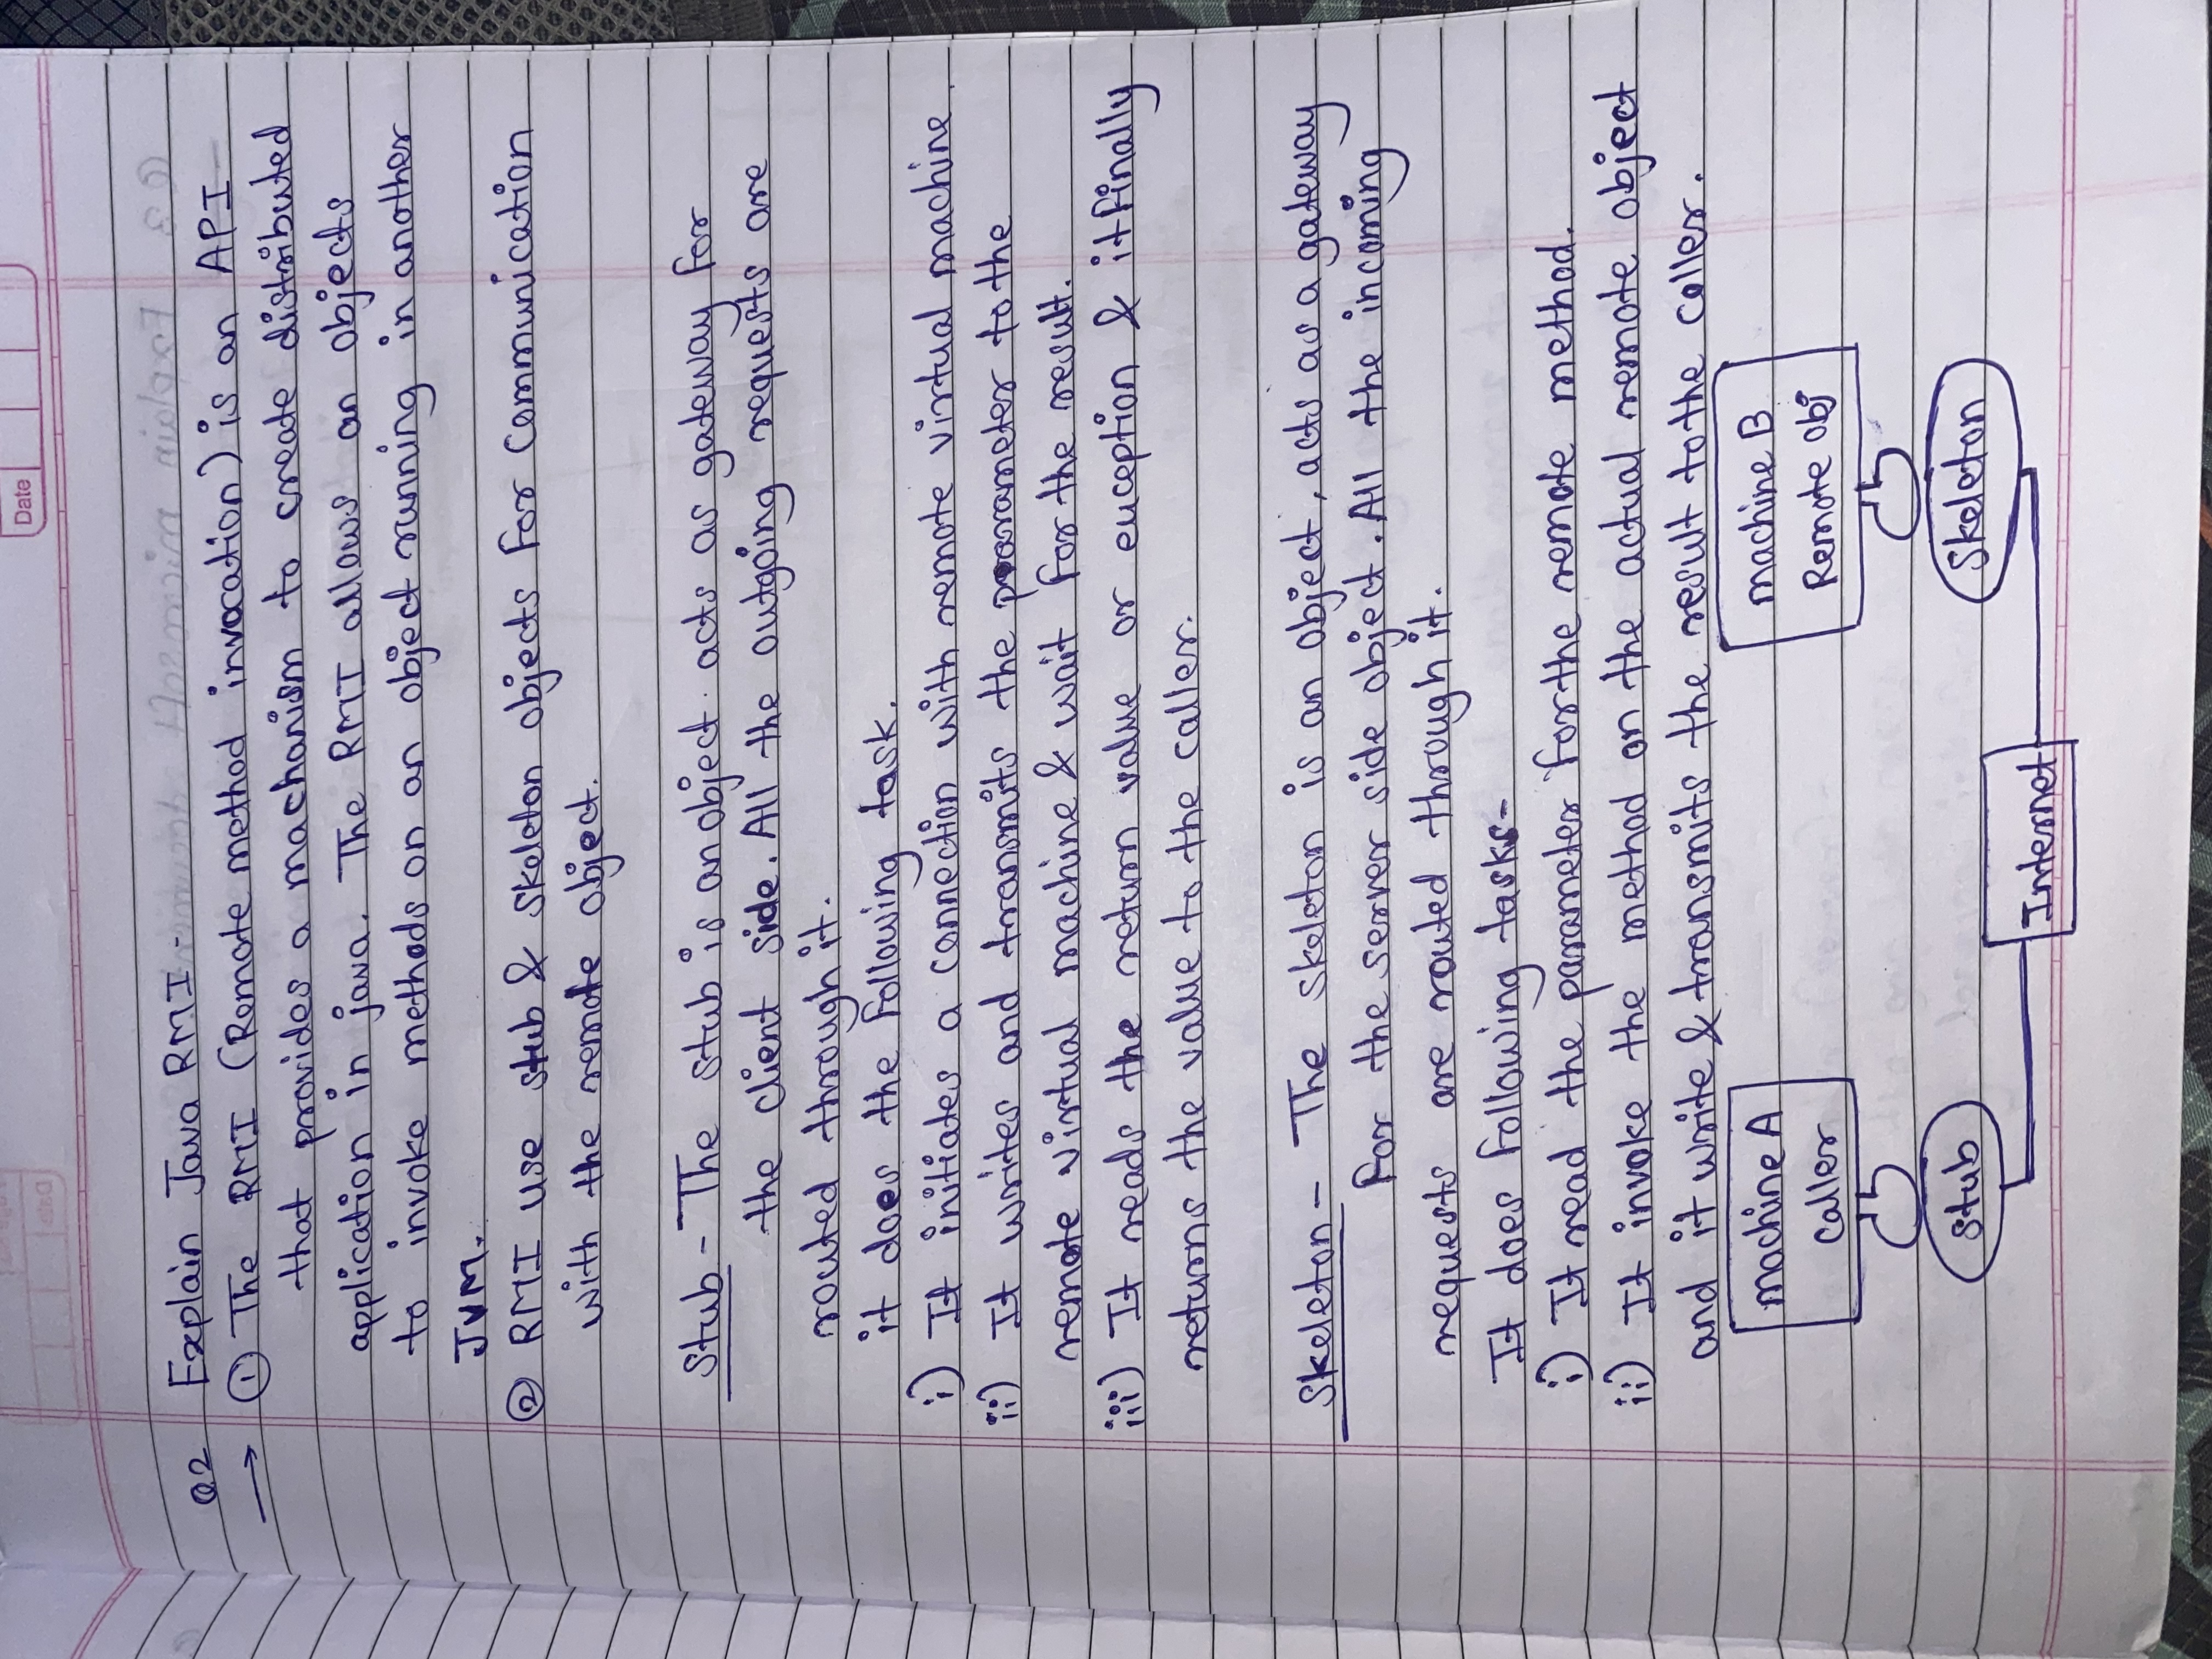 Date
Q2 Explain Java RMI -
→ ① The RMI (Remote method invocation) is an API
that provides a machanism to create distributed
application in java. The RMI allows an objects
to invoke methods on an object running in another
JVM.
② RMI use stub & skeleton objects for communication
with the remote object.
Stub - The stub is an object acts as gateway for
the client side. All the outgoing requests are
routed through it.
it does the following task.
i) It initiates a connection with remote virtual machine.
ii) It writes and transmits the parameter to the
remote virtual machine & wait for the result.
iii) It reads the return value or euception & it finally
returns the value to the caller.
Skeleton - The skeleton is an object, acts as a gateway
for the server side object. All the incoming
requests are routed through it.
It does following tasks-
i) It read the parameter for the remote method.
ii) It invoke the method on the actual remote object
and it write & transmits the result to the caller.
machine A
caller
machine B
Remote obj
stub
Skeleton
Internet